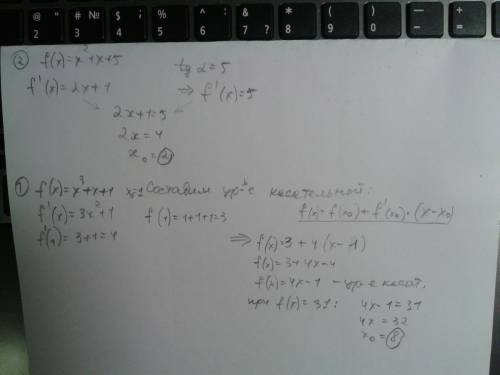 # № $ % ^ & * ( ) _
2 3 4 5 6 7 8 9 0 -
② f(x)=x²+x+5    tg α=5
f'(x)=2x+1    ⇒ f'(x)=5
2x+1=5
2x=4
x₀=②
① f(x)=x³+x+1  x₀=1 Составим ур-е касательной:
f'(x)=3x²+1    f(1)=1+1+1=3    f(x)=f(x₀)+f'(x₀)·(x-x₀)
f'(1)=3+1=4    ⇒ f(x)=3+4(x-1)
f(x)=3+4x-4
f(x)=4x-1 - ур-е касат.
при f(x)=31:    4x-1=31
4x=32
x₀=⑧